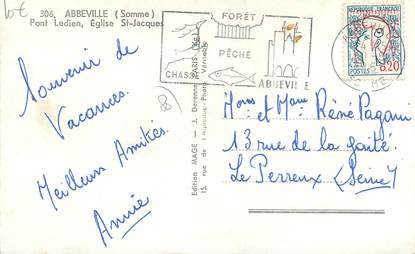 lot
306, ABBEVILLE (Somme)
Pont Ledien, Église St-Jacques
FORÊT
PÊCHE
CHASSE
ABBEVILLE
POSTES
0,20
Souvenir de
Vacances.
8
Meilleurs Amitiés
Annie
Edition MAGE - J. Derenne, PARIS
Hons et Mame René Pagani
13 rue de la gaité
Le Perreux (Seine)